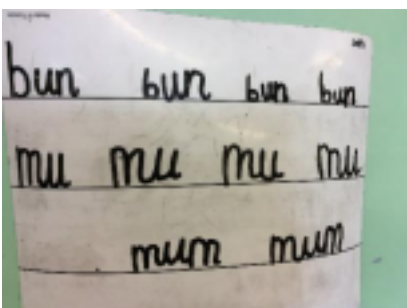 bun bun bun bun
mu mu mu mu
mum mum